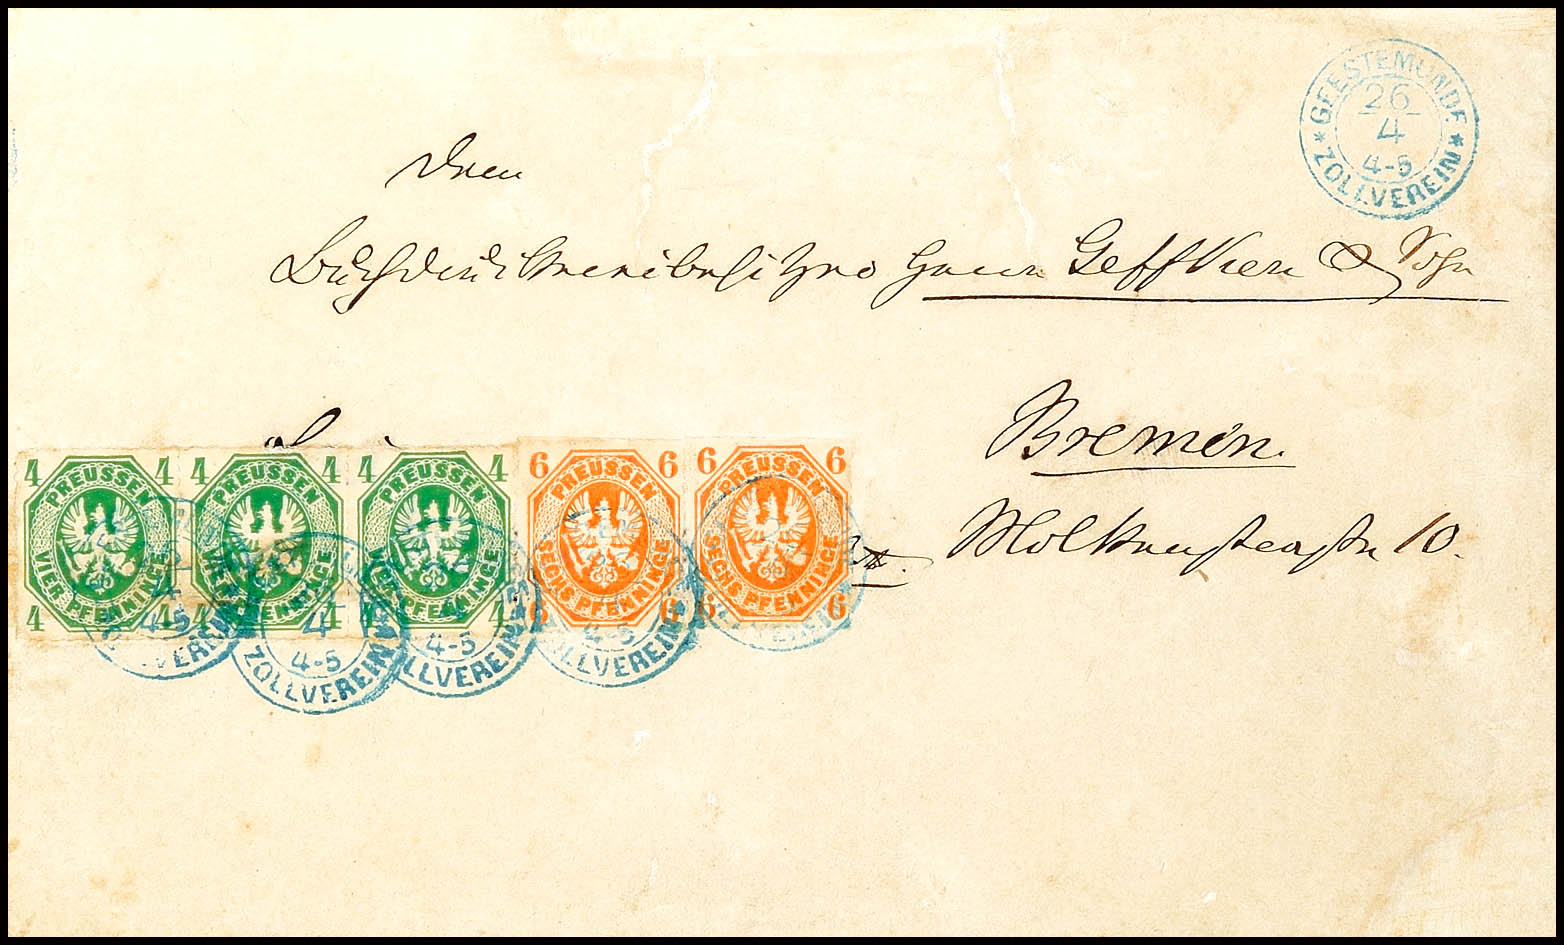 GEESTEMÜNDE
26
4
4-5
* ZOLLVEREIN *
Dem
Buchdruckereibesitzer Herrn Geffken & Sohn
Bremen.
10.
4 4 4 4 4 4 6 6 6 6
PREUSSEN PREUSSEN PREUSSEN PREUSSEN PREUSSEN
VIER PFENNINGE VIER PFENNINGE VIER PFENNINGE SECHS PFENNINGE SECHS PFENNINGE
4 4 4 4 4 4 6 6 6 6
4 4
4-5 4-5 4-5 4-5
ZOLLVEREIN ZOLLVEREIN ZOLLVEREIN ZOLLVEREIN